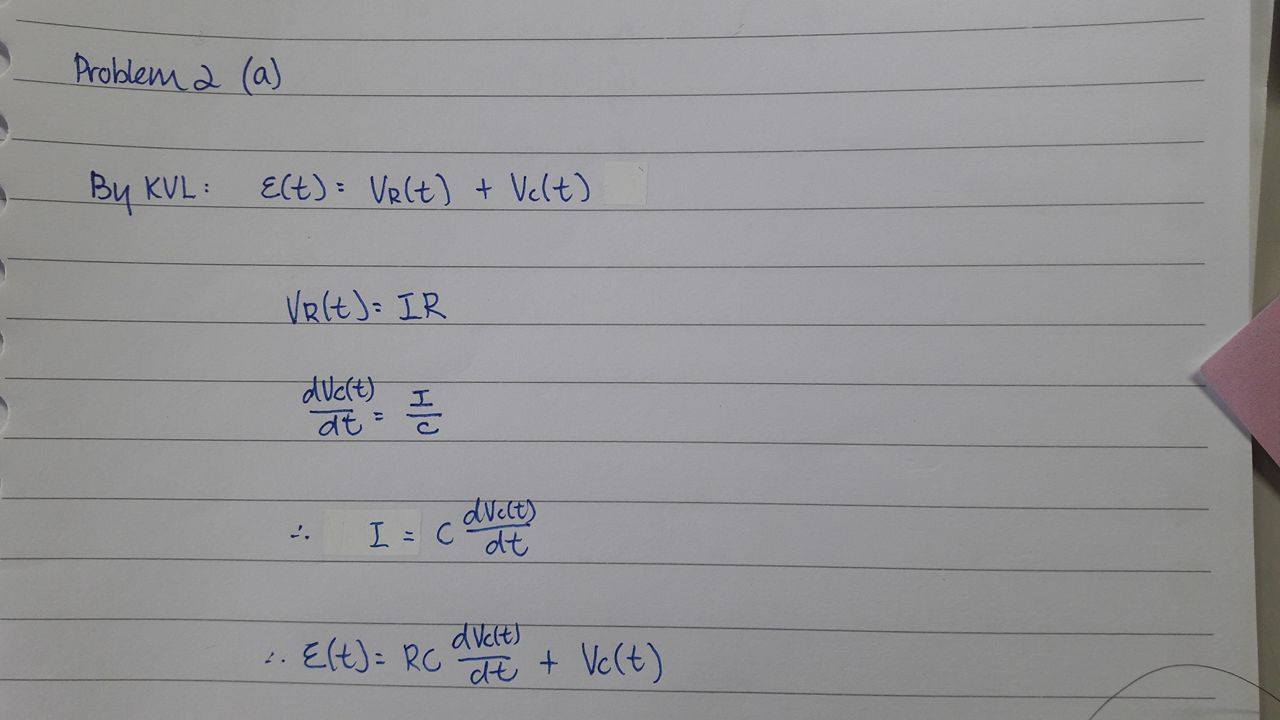 Problem 2 (a)
By KVL: ε(t) = VR(t) + Vc(t)
VR(t) = IR
dVc(t)/dt = I/C
∴ I = C dVc(t)/dt
∴ ε(t) = RC dVc(t)/dt + Vc(t)